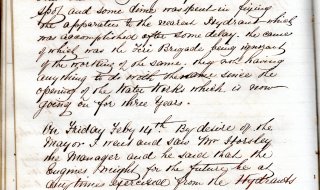 spot and some time was spent in fixing
the apparatus to the nearest Hydrant which
was accomplished after some delay. the cause
of which was the Fire Brigade being ignorant
of the working of the same, they not having
anything to do with the same since the
opening of the Water Works which is now
going on for three years.
On Friday Feby 14th. By desire of the
Mayor I went and saw Mr Horsley
the Manager and he said that the
Engines might for the future be at
any time exercised from the Hydrants